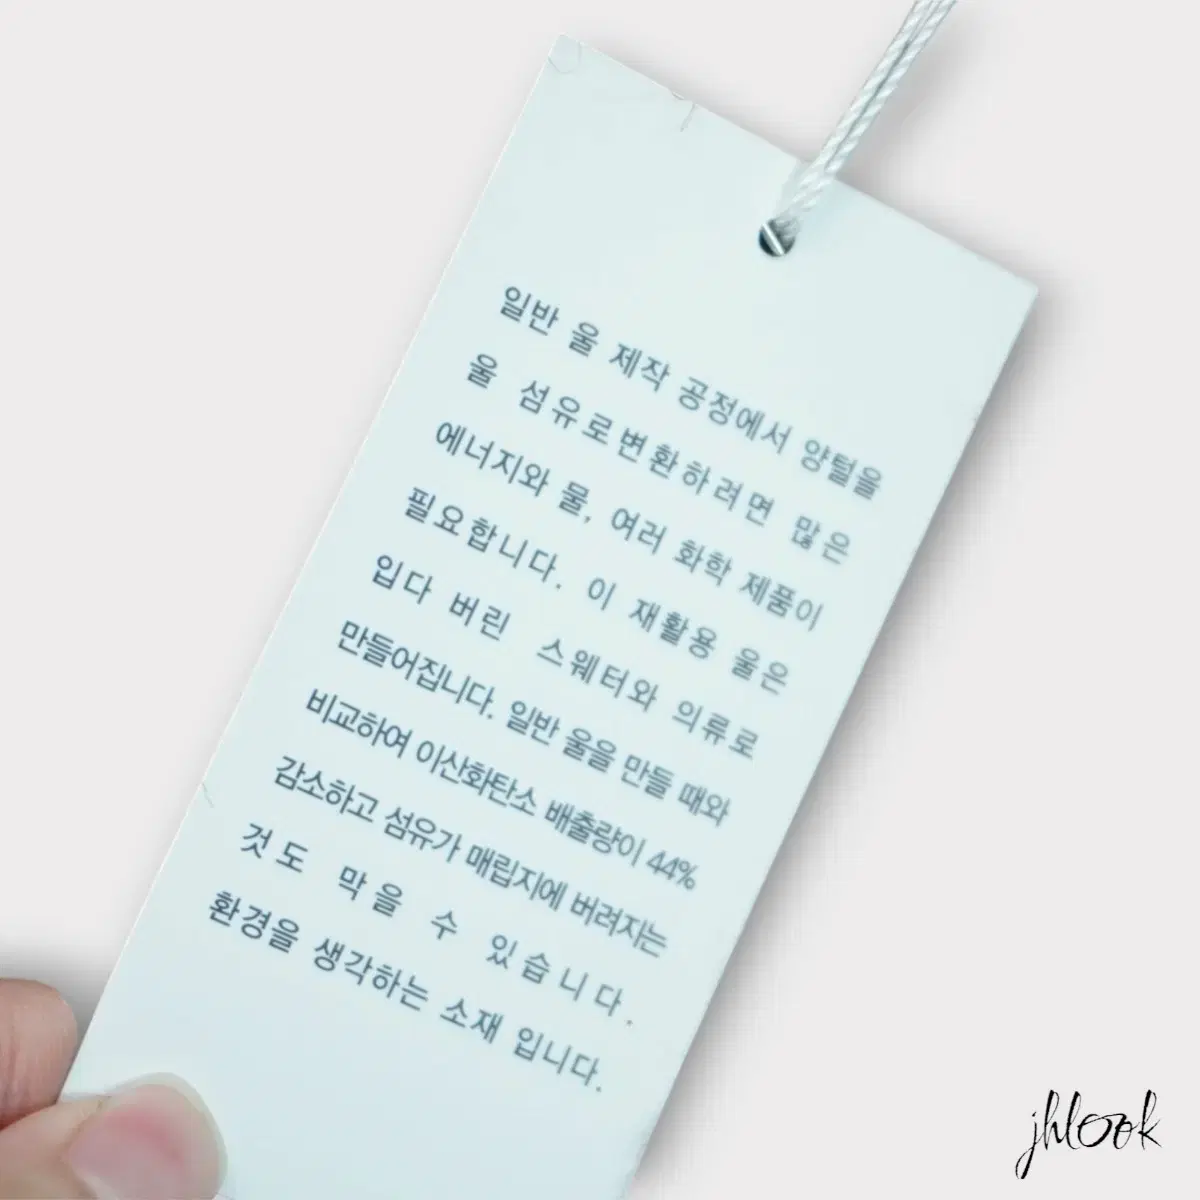 일반 울 제작 공정에서 양털을
울 섬유로변환하려면 많은
에너지와 물, 여러 화학 제품이
필요합니다. 이 재활용 울은
입다 버린 스웨터와 의류로
만들어집니다. 일반 울을 만들 때와
비교하여 이산화탄소 배출량이 44%
감소하고 섬유가 매립지에 버려지는
것도 막을 수 있습니다.
환경을 생각하는 소재 입니다.
jhlook